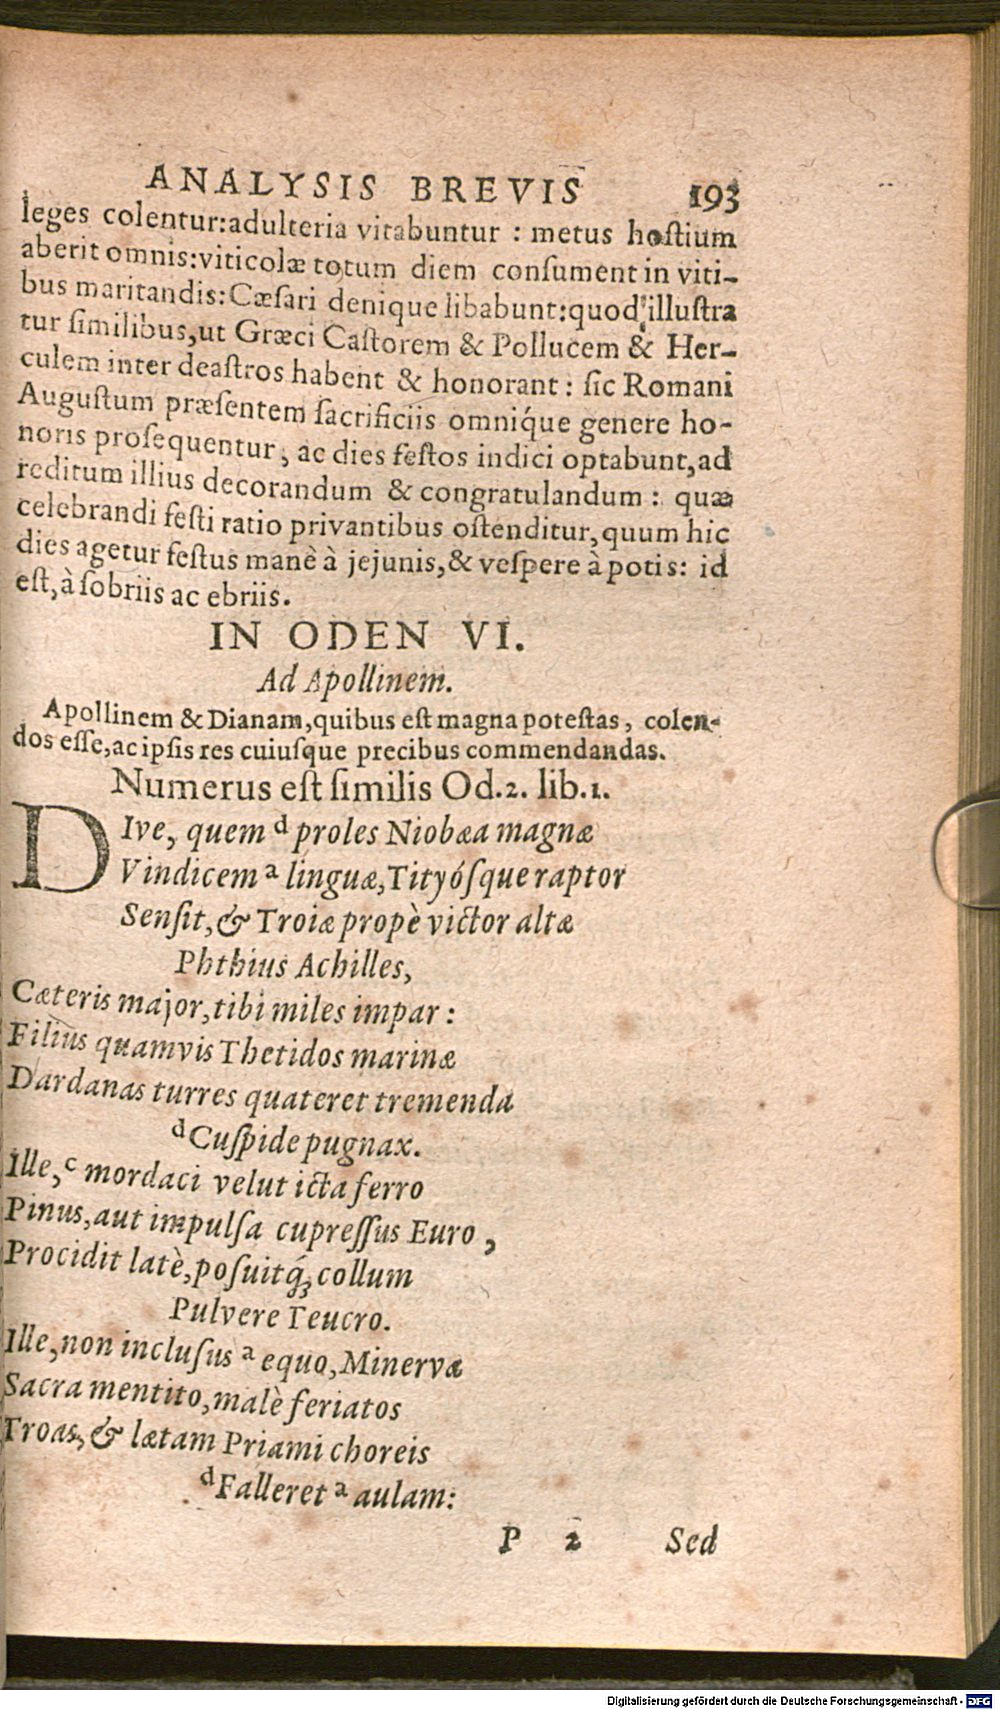 ANALYSIS BREVIS 193
leges colentur:adulteria vitabuntur : metus hoſtium
aberit omnis:viticolæ totum diem conſument in viti-
bus maritandis:Cæſari denique libabunt:quod illuſtra
tur ſimilibus,ut Græci Caſtorem & Pollucem & Her-
culem inter deaſtros habent & honorant: ſic Romani
Auguſtum præſentem ſacrificiis omniq́ue genere ho-
noris proſequentur, ac dies feſtos indici optabunt,ad
reditum illius decorandum & congratulandum: quæ
celebrandi feſti ratio privantibus oſtenditur,quum hic
dies agetur feſtus manè à jejunis,& veſpere à potis: id
eſt,à ſobriis ac ebriis.
IN ODEN VI.
Ad Apollinem.
Apollinem & Dianam,quibus eſt magna poteſtas, colen-
dos eſſe,ac ipſis res cuiuſque precibus commendandas.
Numerus eſt ſimilis Od.2. lib.1.
DIve, quem d proles Niobæa magnæ
Vindicem a linguæ,Tityóſque raptor
Senſit,& Troiæ propè victor altæ
Phthius Achilles,
Cæteris major,tibi miles impar:
Filius quamvis Thetidos marinæ
Dardanas turres quateret tremenda
d Cuſpide pugnax.
Ille, c mordaci velut icta ferro
Pinus,aut impulſa cupreſſus Euro,
Procidit latè,poſuitq́ꝫ collum
Pulvere Teucro.
Ille,non incluſus a equo,Minervæ
Sacra mentito,malè feriatos
Troas,& lætam Priami choreis
d Falleret a aulam:
P 2 Sed
Digitalisierung gefördert durch die Deutsche Forschungsgemeinschaft - DFG